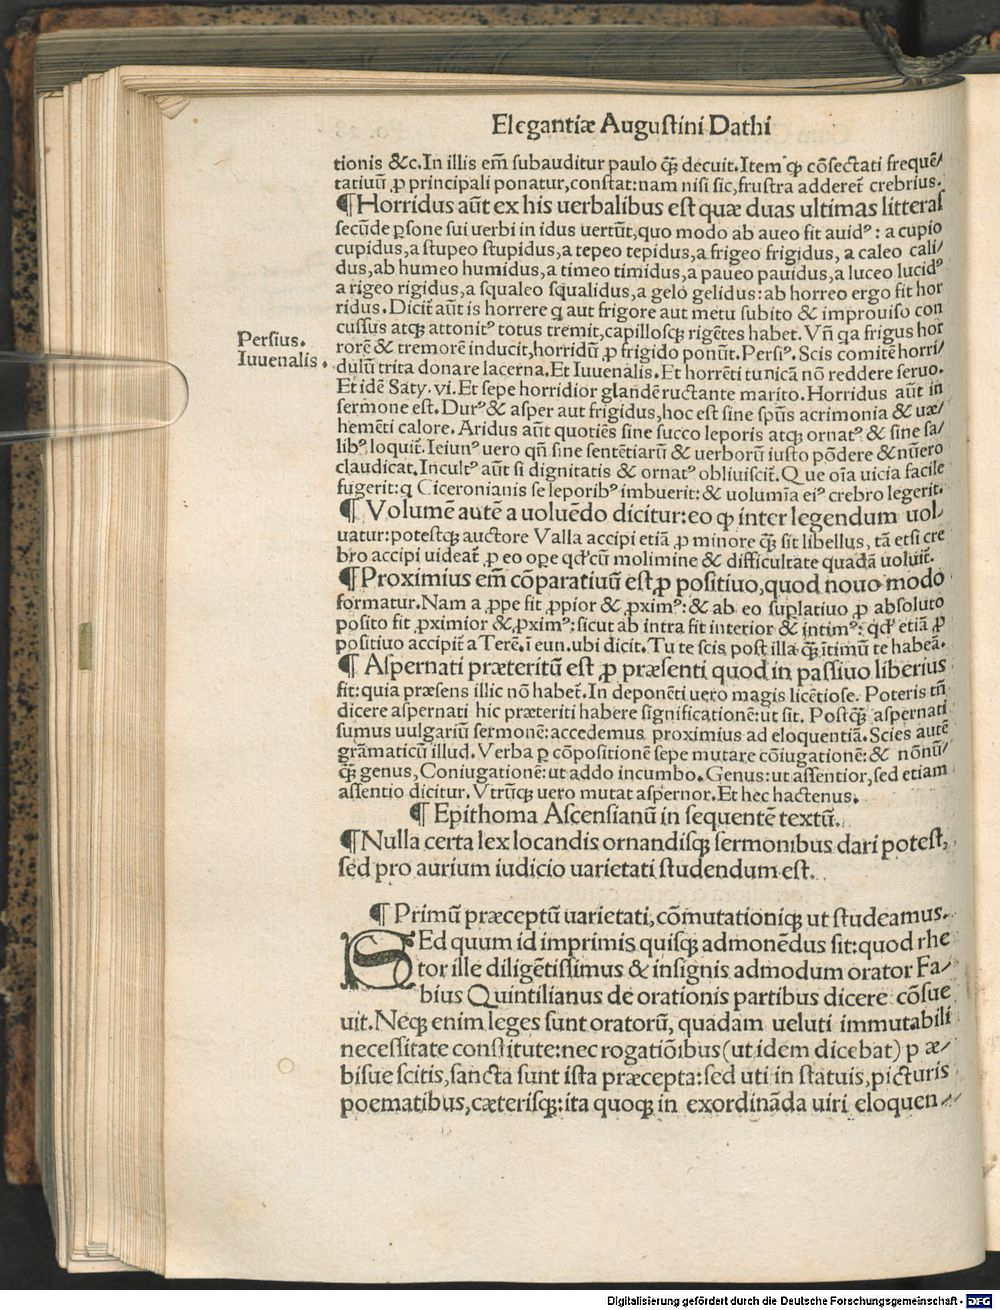 Elegantiæ Augustini Dathi
tionis &c. In illis em̄ subauditur paulo q̄ꝫ decuit. Item ꝙ cōsectati frequē/
tatiuū ꝓ principali ponatur, constat: nam nisi sic, frustra adderet̄ crebrius.
¶ Horridus aūt ex his uerbalibus est quæ duas ultimas litteras
secūde ꝑsone sui uerbi in idus uertūt, quo modo ab aueo fit auidꝰ: a cupio
cupidus, a stupeo stupidus, a tepeo tepidus, a frigeo frigidus, a caleo cali/
dus, ab humeo humidus, a timeo timidus, a paueo pauidus, a luceo lucidꝰ
a rigeo rigidus, a squaleo squalidus, a gelo gelidus: ab horreo ergo fit hor
ridus. Dicit̄ aūt is horrere q aut frigore aut metu subito & improuiso con
cussus atqꝫ attonitꝰ totus tremit, capillosqꝫ rigētes habet. Vn̄ qa frigus hor
rorē & tremorē inducit, horridū ꝓ frigido ponūt. Persiꝰ. Scis comitē horri/
Persius.
dulū trita donare lacerna. Et Iuuenalis. Et horrēti tunicā nō reddere seruo.
Iuuenalis.
Et idē Saty. vi. Et sepe horridior glandē ructante marito. Horridus aūt in
sermone est. Durꝰ & asper aut frigidus, hoc est sine spūs acrimonia & uæ/
hemēti calore. Aridus aūt quotiēs sine succo leporis atqꝫ ornatꝰ & sine sa/
libꝰ loquit̄. Ieiunꝰ uero qn̄ sine sentētiarū & uerborū iusto pōdere & nūero
claudicat. Incultꝰ aūt si dignitatis & ornatꝰ obliuiscit̄. Que oīa uicia facile
fugerit: q Ciceronianis se leporibꝰ imbuerit: & uolumīa eiꝰ crebro legerit.
¶ Volumē autē a uoluēdo dicitur: eo ꝙ inter legendum uol/
uatur: potestqꝫ auctore Valla accipi etiā ꝓ minore q̄ꝫ sit libellus, tā etsi cre
bro accipi uideat̄ ꝓ eo ope qd' cū molimine & difficultate quadā uoluit̄.
¶ Proximius em̄ cōparatiuū est ꝓ positiuo, quod nouo modo
formatur. Nam a ꝓpe fit ꝓpior & ꝓximꝰ: & ab eo suplatiuo ꝓ absoluto
posito fit ꝓximior & ꝓximꝰ: sicut ab intra fit interior & intimꝰ: qd' etiā ꝓ
positiuo accipit̄ a Terē. ī eun. ubi dicit. Tu te scis post illa q̄ꝫ ītimū te habeā.
¶ Aspernati præteritū est ꝓ præsenti quod in passiuo liberius
fit: quia præsens illic nō habet̄. In deponēti uero magis licētiose. Poteris tn̄
dicere aspernati hic præteriti habere significationē: ut sit. Postq̄ꝫ aspernati
sumus uulgariū sermonē: accedemus proximius ad eloquentiā. Scies autē
grāmaticū illud. Verba ꝑ cōpositionē sepe mutare cōiugationē: & nōnū/
q̄ꝫ genus, Coniugationē: ut addo incumbo. Genus: ut assentior, sed etiam
assentio dicitur. Vtrūqꝫ uero mutat aspernor. Et hec hactenus.
¶ Epithoma Ascensianū in sequentē textū.
¶ Nulla certa lex locandis ornandisqꝫ sermonibus dari potest,
sed pro aurium iudicio uarietati studendum est.
¶ Primū præceptū uarietati, cōmutationiqꝫ ut studeamus.
SEd quum id imprimis quisqꝫ admonēdus sit: quod rhe
tor ille diligētissimus & insignis admodum orator Fa/
bius Quintilianus de orationis partibus dicere cōsue
uit. Neqꝫ enim leges sunt oratorū, quadam ueluti immutabili
necessitate constitute: nec rogatiōibus (ut idem dicebat) p æ/
bisue scitis, sancta sunt ista præcepta: sed uti in statuis, picturis
poematibus, cæterisqꝫ: ita quoqꝫ in exordināda uiri eloquen/
Digitalisierung gefördert durch die Deutsche Forschungsgemeinschaft - DFG